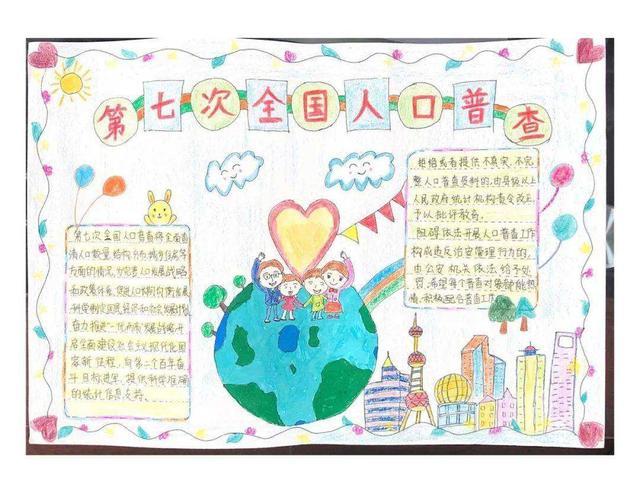 第七次全国人口普查
第七次全国人口普查将全面查
清人口数量、结构、分布、城乡住房等
方面的情况,为完善人口发展战略
和政策体系,促进人口长期均衡发展
开启全面建设社会主义现代化国
家新征程,向第二个百年奋
斗目标进军,提供科学准确
的统计信息支持。
拒绝或者提供不真实、不完
整人口普查资料的,由县级以上
人民政府统计机构责令改正,
予以批评教育。
阻碍依法开展人口普查工作
构成违反治安管理行为的,
由公安机关依法给予处
罚,希望每个普查对象都能热
情、积极配合普查工作。